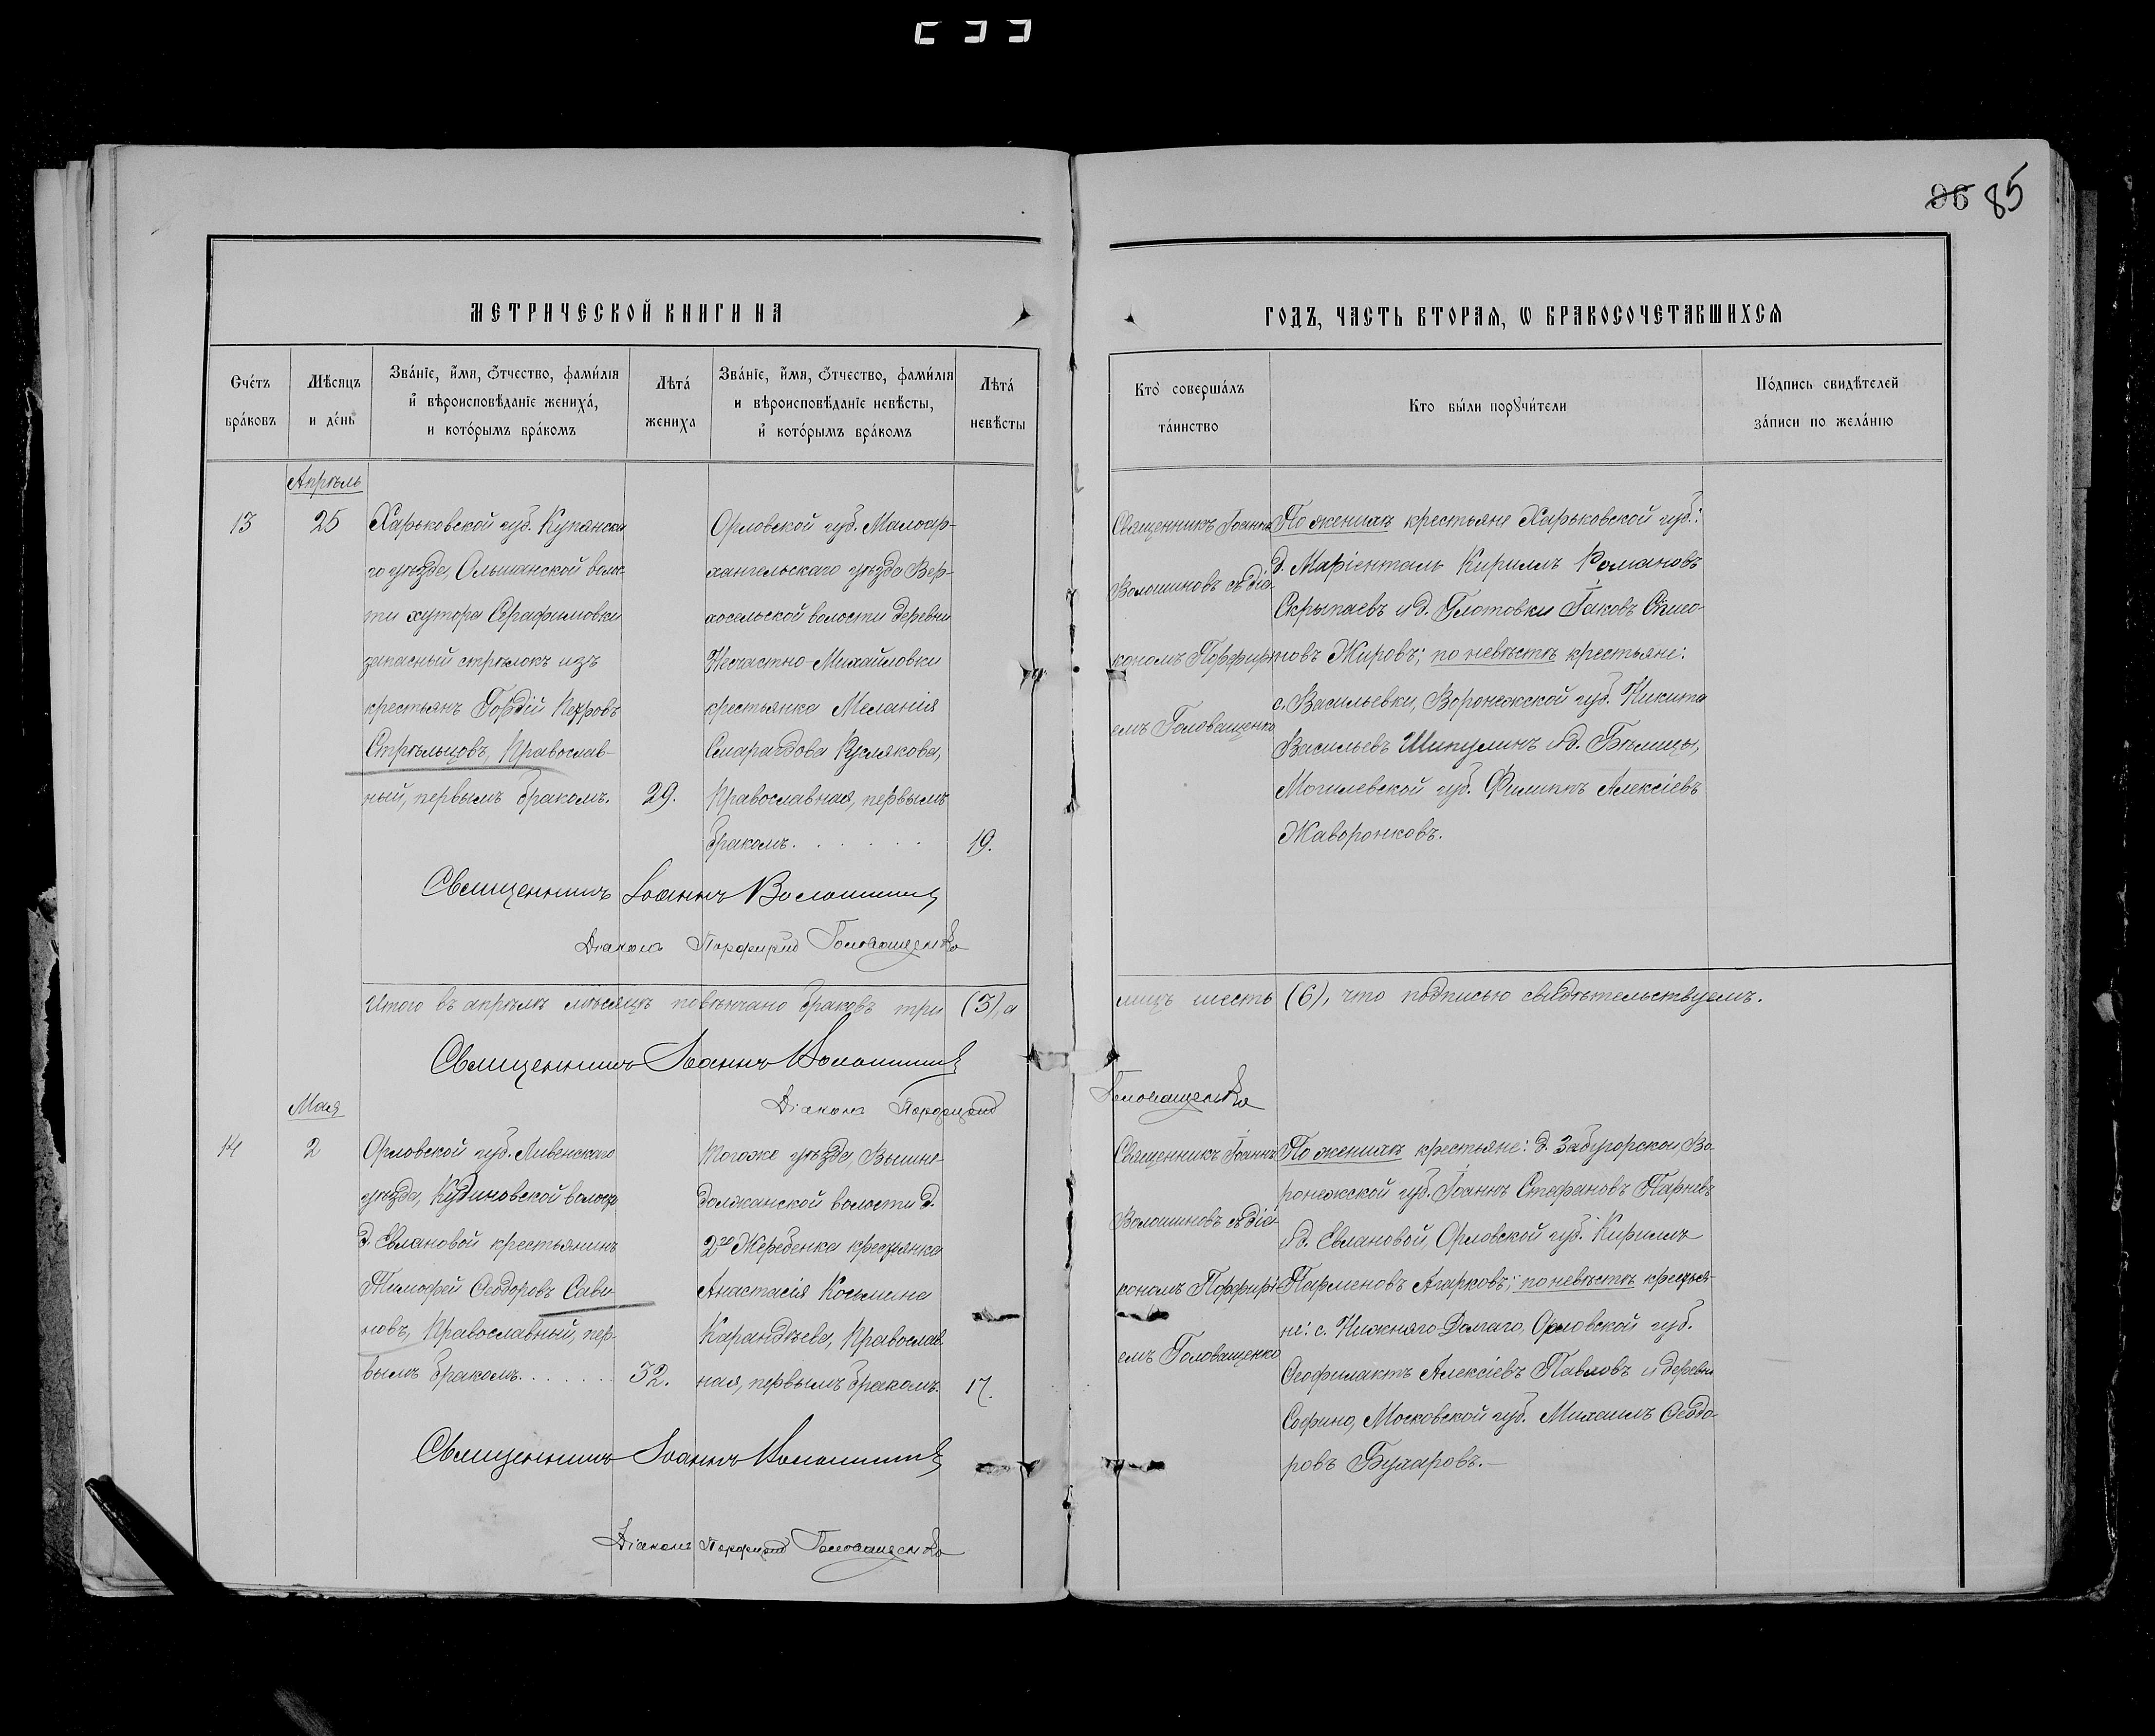 96 85
МЕТРИЧЕСКОЙ КНИГИ НА
ГОДЪ, ЧАСТЬ ВТОРАЯ, Ѡ БРАКОСОЧЕТАВШИХСЯ
Счетъ браковъ
Мѣсяцъ и день
Званіе, имя, ѿчество, фамилія
и вѣроисповѣданіе жениха,
и которымъ бракомъ
Лѣта жениха
Званіе, имя, ѿчество, фамилія
и вѣроисповѣданіе невѣсты,
и которымъ бракомъ
Лѣта невѣсты
Кто совершалъ
таинство
Кто были порꙋчители
Подпись свидѣтелей
записи по желанію
Апрѣль
13
25
Харьковской губ. Купянска
го уѣзда, Ольшанской волос-
ти хутора Серафимовки
запасный стрѣлокъ изъ
крестьянъ Гордій Петровъ
Стрѣльцовъ, Православ-
ный, первымъ бракомъ.
29.
Орловской губ. Малоар-
хангельскаго уѣзда Вер-
хосельской волости деревни
Несчастно-Михайловки
крестьянка Меланія
Смарагдова
Православная, первымъ
бракомъ.
19.
Священникъ Іоаннъ
Волошиновъ съ діа-
кономъ Порфирі-
емъ Головащенко
По женихѣ крестьяне Харьковской губ.:
д. Маріенталь Кириллъ Романовъ
Скрыпаевъ и д. Глотовки Іаковъ Симо-
новъ Жировъ; по невѣстѣ крестьяне:
с. Васильевки, Воронежской губ. Никита
Васильевъ Шипулинъ и д. Бѣлицы,
Могилевской губ. Филиппъ Алексіевъ
Жаворонковъ.
Священникъ Іоаннъ Волошиновъ
Діаконъ Порфирій Головащенко
Итого въ апрѣлѣ мѣсяцѣ повѣнчано браковъ три (3), а
лицъ шесть (6), что подписью свидѣтельствуемъ.
Священникъ Іоаннъ Волошиновъ
Діаконъ Порфирій
Головащенко
Мая
14
2
Орловской губ. Ливенскаго
уѣзда, Кудиновской волости
д. Евлановой крестьянинъ
Тимофей Ѳеодоровъ Сави-
новъ, Православный, пер-
вымъ бракомъ.
32.
Тогоже уѣзда, Вышне-
должанской волости д.
2го Жеребенка крестьянка
Анастасія Косьмина
Карандѣева, Православ-
ная, первымъ бракомъ.
17.
Священникъ Іоаннъ
Волошиновъ съ діа-
кономъ Порфирі-
емъ Головащенко
По женихѣ крестьяне: д. Забугорской, Во-
ронежской губ. Іоаннъ Стефановъ
и д. Евлановой, Орловской губ. Кириллъ
Парменовъ Агарковъ; по невѣстѣ крестья-
не: с. Нижняго-Долгаго, Орловской губ.
Ѳеофилактъ Алексіевъ Павловъ и деревни
Софино, Московской губ. Михаилъ Ѳеодо-
ровъ Бухаровъ.
Священникъ Іоаннъ Волошиновъ
Діаконъ Порфирій Головащенко